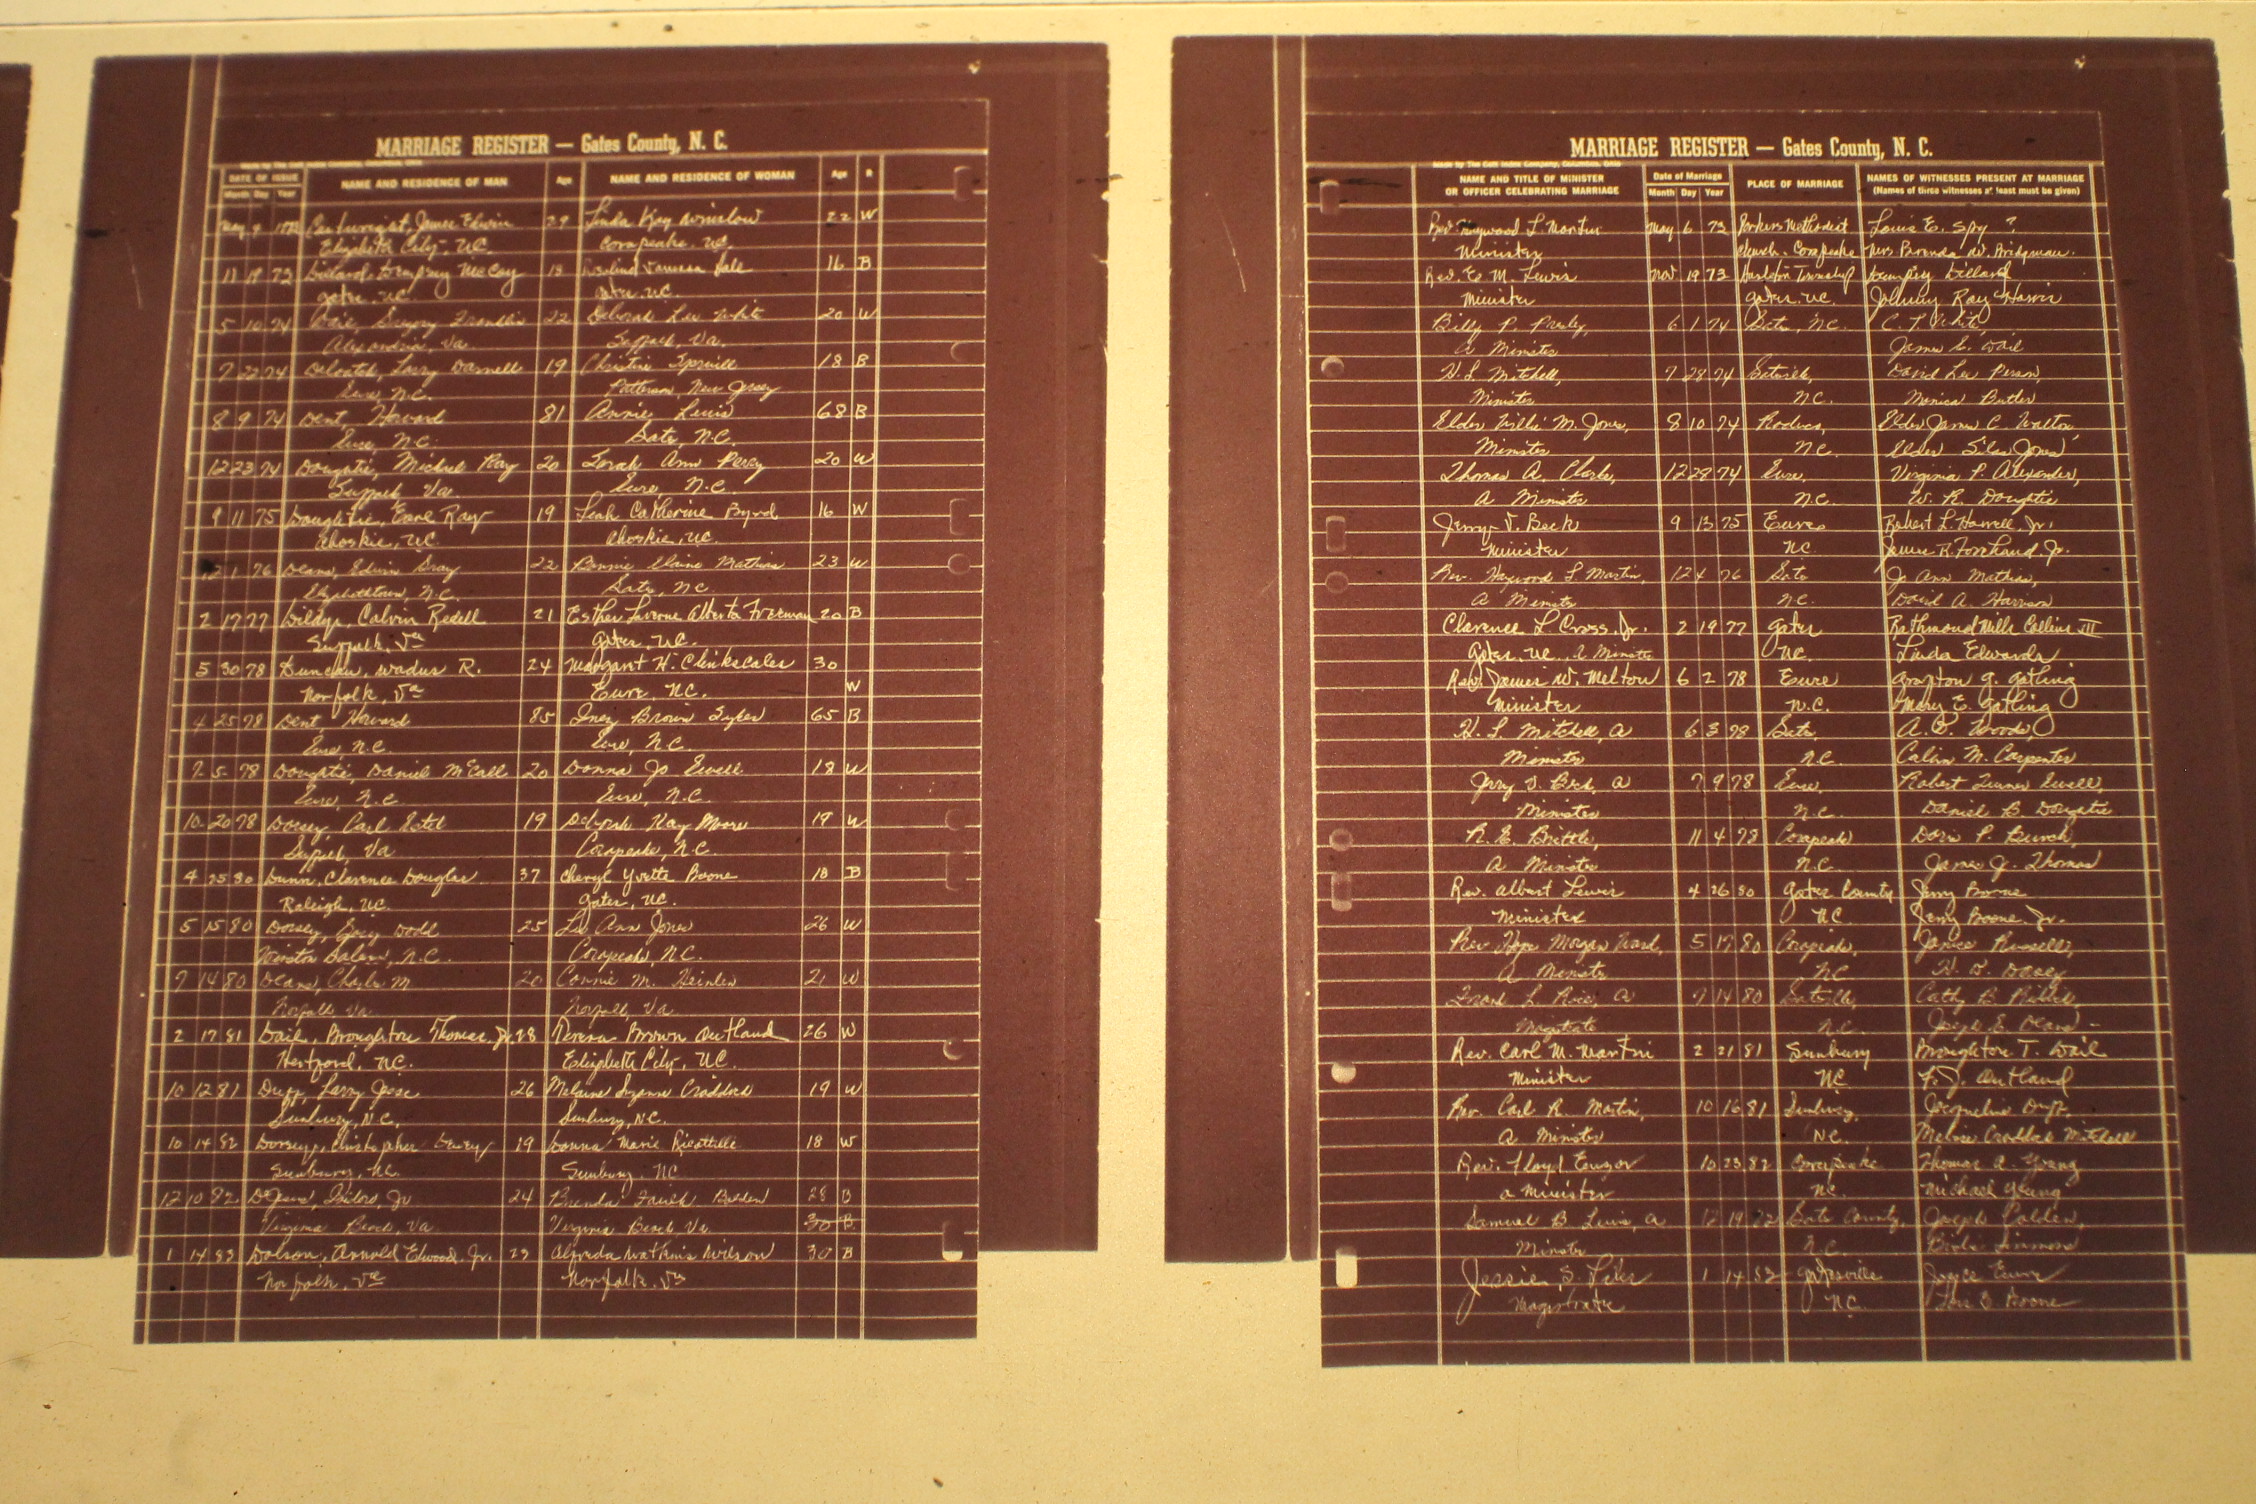 MARRIAGE REGISTER — Gates County, N. C.
DATE OF ISSUE
Month Day Year
NAME AND RESIDENCE OF MAN
Age
NAME AND RESIDENCE OF WOMAN
Age
R
May 4 James Edwin 29 Linda Kay Winslow 22 W
Elizabeth City, NC Corapeake, NC.
11 19 73 Dillard, McCoy 18 Vanessa 16 B
Gates, NC. Gates, NC.
5 10 74 Dail, Gregory Franklin 22 Deborah Lee White 20 W
Alexandria, Va. Suffolk, Va.
7 22 74 Deloatch, Larry Darnell 19 Christine Spruill 18 B
Eure, N.C. Patterson, New Jersey
8 9 74 Dent, Howard 81 Annie Lewis 68 B
Eure, N.C. Gates, N.C.
12 23 74 Michael Ray 20 Ann 20 W
Suffolk, Va. Eure N.C.
9 11 75 Doughtie, Earl Ray 19 Leah Catherine Byrd 16 W
Ahoskie, NC. Ahoskie, NC.
12 1 76 Deans, Edwin Gray 22 Bonnie Elaine Mathias 23 W
Elizabethtown, N.C. Gates, NC
2 17 77 Dildy, Calvin Redell 21 Esther Laverne Alberta Freeman 20 B
Suffolk, Va Gates, NC.
5 30 78 Duncan, Wadus R. 24 Margaret H. Clinkscales 30
Norfolk, Va Eure, NC. W
4 25 78 Dent, Howard 85 Inez Brown Sykes 65 B
Eure, N.C. Eure, N.C.
7 5 78 Daniel McCall 20 Donna Jo Ewell 18 W
Eure, N.C. Eure, N.C.
10 20 78 Dorsey, Carl Estel 19 Deborah Kay Moore 19 W
Suffolk, Va Corapeake, N.C.
4 25 80 Dunn, Clarence Douglas 37 Cheryl Yvette Boone 18 B
Raleigh, NC. Gates, NC.
5 15 80 Dorsey, Dodd 25 Ann Jones 26 W
Winston Salem, N.C. Corapeake, N.C.
7 14 80 Deans, Charles M 20 Connie M. 21 W
Norfolk Va. Norfolk, Va
2 17 81 Dail, Broughton Thomas, Jr. 28 Teresa Brown Outland 26 W
Hertford, NC. Elizabeth City, NC.
10 12 81 Duff, Larry Jesse 26 Melanie Suzanne Craddock 19 W
Sunbury, N.C. Sunbury, N.C.
10 14 82 Dorsey, Christopher Dewey 19 Donna Marie 18 W
Sunbury, NC. Sunbury, NC
12 10 82 Isidoro, Jr 24 Brenda Faulk 28 B
Virginia Beach, Va Virginia Beach, Va. 30 B
1 14 83 Arnold Elwood, Jr. 29 Alfreda Watkins Wilson 30 B
Norfolk, Va Norfolk, Va
MARRIAGE REGISTER — Gates County, N. C.
NAME AND TITLE OF MINISTER
OR OFFICER CELEBRATING MARRIAGE
Date of Marriage
Month Day Year
PLACE OF MARRIAGE
NAMES OF WITNESSES PRESENT AT MARRIAGE
(Names of three witnesses at least must be given)
Rev. Haywood L. Martin May 6 73 Methodist Louis E. Spy ?
Minister Church - Corapeake Mrs Brenda W. Bridgman
Rev. E. M. Lewis Nov 19 73 Township Dillard
Minister Gates, NC. Johnny Ray Harris
Billy P. Presley, 6 1 74 Gates, NC. C. T. White
A Minister James E. Dail
H. L. Mitchell, 7 28 74 Gatesville, David Lee Person,
Minister N.C. Monica Butler
Elder Willie M. Jones, 8 10 74 Roduco, Elder James C. Walton
Minister N.C. Elder Silas Jones
Thomas A. Clarke, 12 28 74 Eure, Virginia P. Alexander,
A Minister N.C. W. R.
Jerry V. Beck 9 13 75 Eure Robert L. Harrell, Jr.
Minister NC. James R. Forehand Jr.
Rev. Haywood L. Martin, 12 4 76 Gates Jo Ann Mathias,
A Minister N.C. David A. Harrison
Clarence L. Cross, Jr. 2 19 77 Gates Rathmond Mills Collins III
Gates, NC., A Minister NC. Linda Edwards
Rev. James W. Melton 6 2 78 Eure Grafton G. Gatling
Minister N.C. Mary E. Gatling
H. L. Mitchell, A 6 3 78 Gates, A. B. Woods
Minister N.C. Calvin M. Carpenter
Jerry V. Beck, A 7 9 78 Eure, Robert Turner Ewell,
Minister N.C. Daniel B.
R. E. Brittle, 11 4 78 Corapeake Doris P. Bunch,
A Minister N.C. James J. Thomas
Rev. Albert Lewis 4 26 80 Gates County Jerry Boone
Minister NC. Jerry Boone, Jr.
Rev Morgan Ward, 5 17 80 Corapeake, Janice Russell,
A Minister NC H. D. Dorsey
Frank L. Rice, A 7 14 80 Gatesville, Cathy B.
Magistrate N.C. Joseph E. Deans
Rev. Carl M. Martin 2 21 81 Sunbury Broughton T. Dail
Minister NC. F. J. Outland
Rev. Carl R. Martin, 10 16 81 Sunbury, Jacqueline Duff,
A Minister NC. Craddock Mitchell
Rev. Floyd 10 23 82 Corapeake Thomas A. Young
A Minister NC. Michael Young
Samuel B. Lewis, A 12 19 Gates County, Joseph
Minister N.C. Simmons
Jessie S. 1 14 Gatesville Joyce Eure
Magistrate N.C. Boone